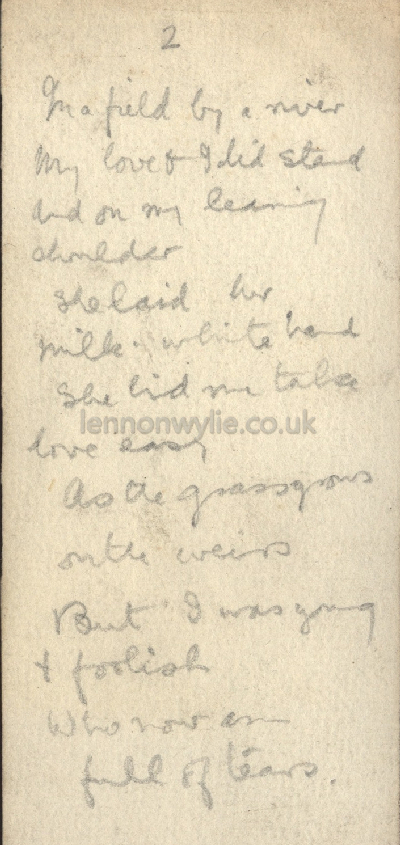 2
In a field by a river
My love & I did stand
And on my leaning
shoulder
She laid her
milk-white hand
She bid me take
lennonwylie.co.uk
love easy
As the grass grows
on the weirs
But I was young
& foolish
Who now am
full of tears.